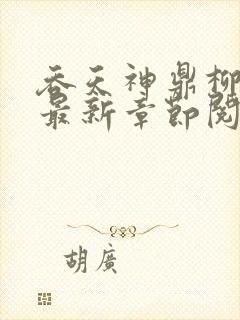 吞天神鼎柳
最新章節閱
胡廣